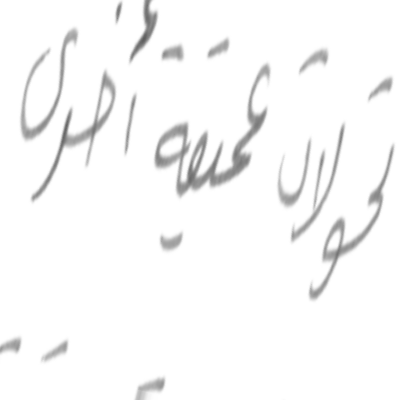 تحولات عميقة أخرى